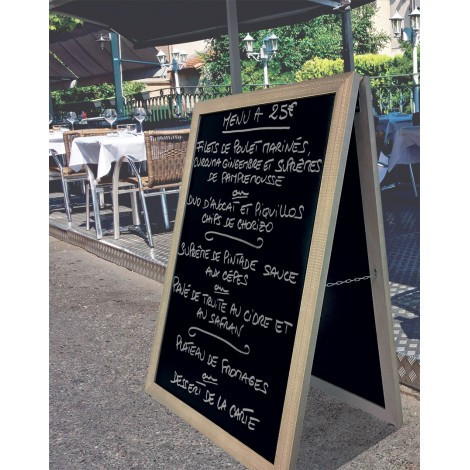 MENU A 25€
FILETS DE POULET MARINÉS,
CURCUMA GINGEMBRE ET SUPRÊMES
DE PAMPLEMOUSSE
ou
DUO D'AVOCAT ET PIQUILLOS
CHIPS DE CHORIZO
SUPRÊME DE PINTADE SAUCE
AUX CÈPES
ou
PAVÉ DE TRUITE AU CIDRE ET
AU SAFRAN
PLATEAU DE FROMAGES
ou
DESSERT DE LA CARTE